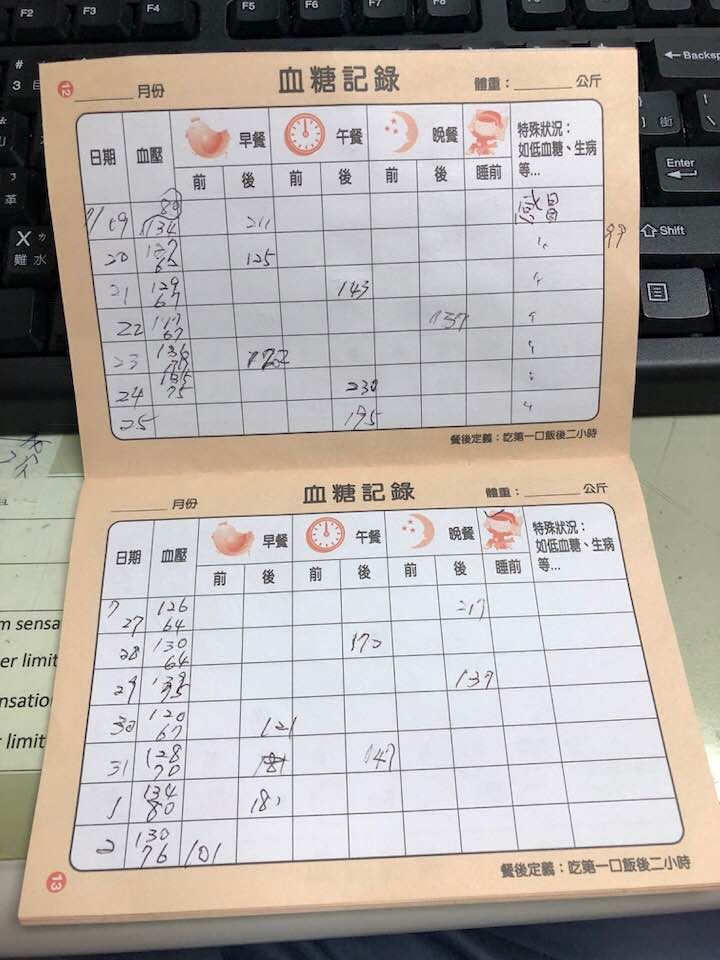 F2 F3 F4 F5 F6 F7 F8
Backsp
Enter
Shift
X
難 水
#
3
12
月份 血糖記錄 體重： 公斤
日期 血壓 早餐 午餐 晚餐 特殊狀況：
如低血糖、生病
等...
前 後 前 後 前 後 睡前
7/19 134 80 211 感冒
20 127 65 125 〃
21 129 67 143 〃
22 117 67 137 〃
23 136 〃
24 75 230 〃
25 195 〃
餐後定義：吃第一口飯後二小時
月份 血糖記錄 體重： 公斤
日期 血壓 早餐 午餐 晚餐 特殊狀況：
如低血糖、生病
等...
前 後 前 後 前 後 睡前
7/27 126 64 217
28 130 64 172
29 139 137
30 120 67 121
31 128 70 147
1 134 80 181
2 130 76 101
餐後定義：吃第一口飯後二小時
13
m sensa
er limit
nsatio
r limit